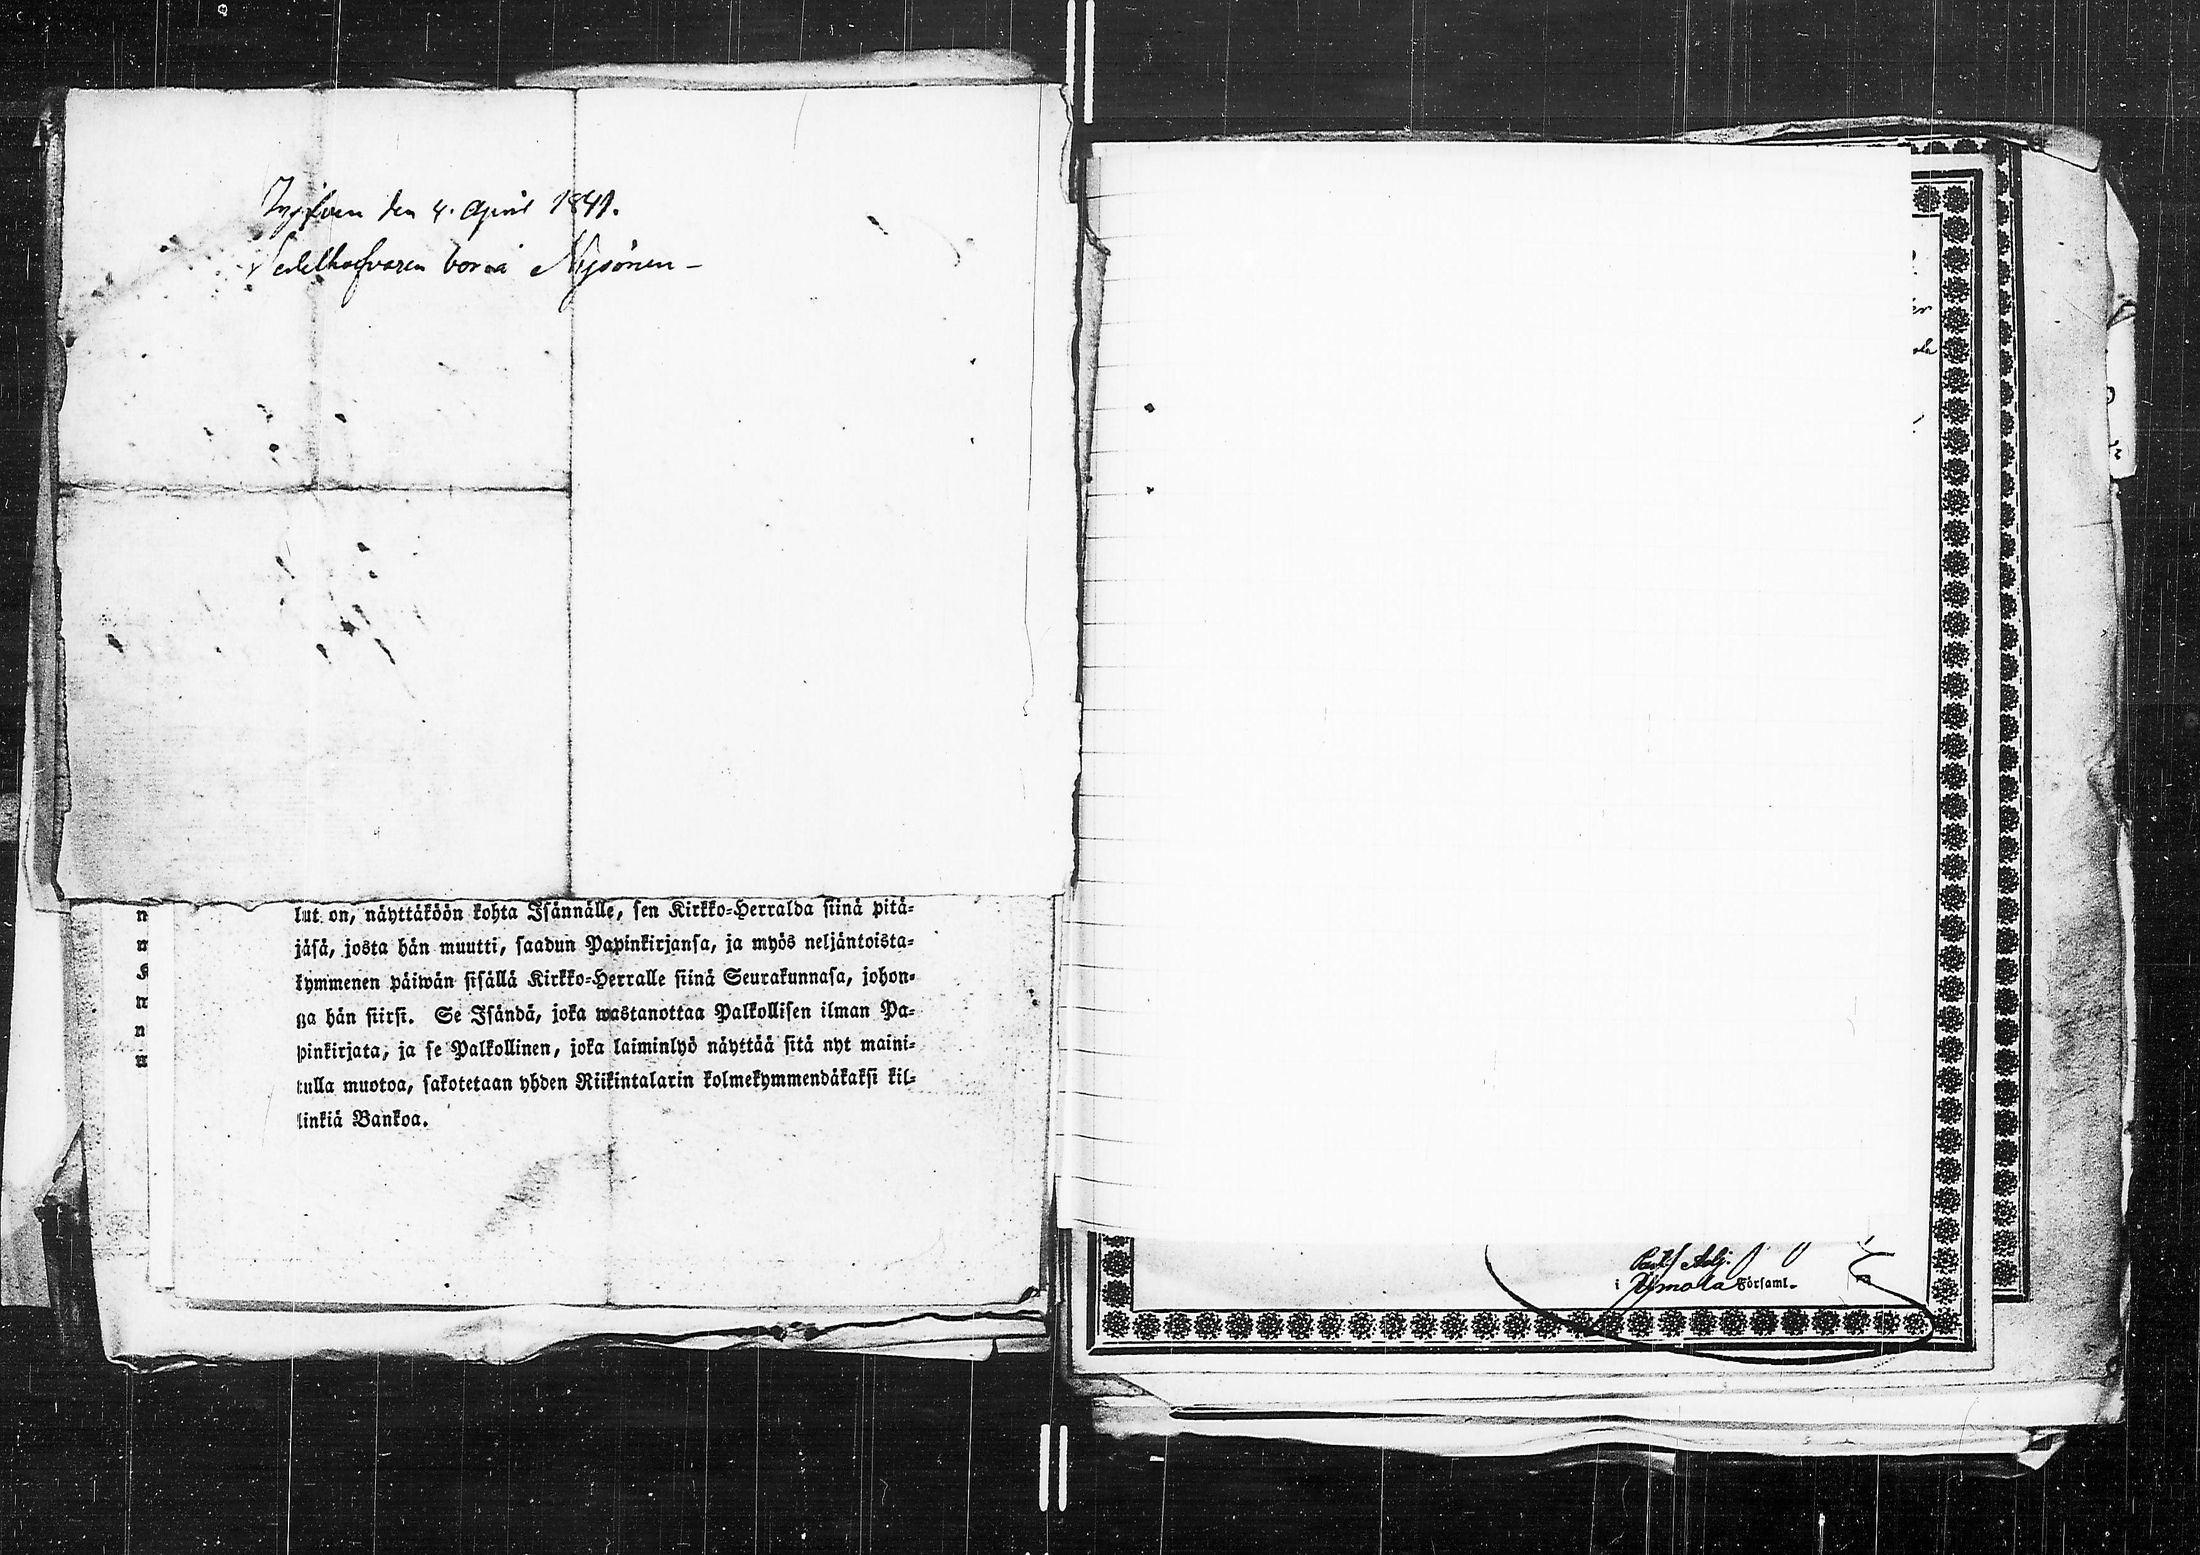 den 4. April 1841.
Sedelhafvaren bor å
lut on, näyttäköön kohta Isännälle, sen Kirkko-Herralda siinä pitä-
jäsä, josta hän muutti, saadun Papinkirjansa, ja myös neljäntoista-
kymmenen päiwän sisällä Kirkko-Herralle siinä Seurakunnasa, johon-
ga hän siirsi. Se Isändä, joka wastanottaa Palkollisen ilman Pa-
pinkirjata, ja se Palkollinen, joka laiminlyö näyttää sitä nyt maini-
tulla muotoa, sakotetaan yhden Riikintalarin kolmekymmendäkaksi kil-
linkiä Bankoa.
Past. Adj.
i Pyhmala Församl.